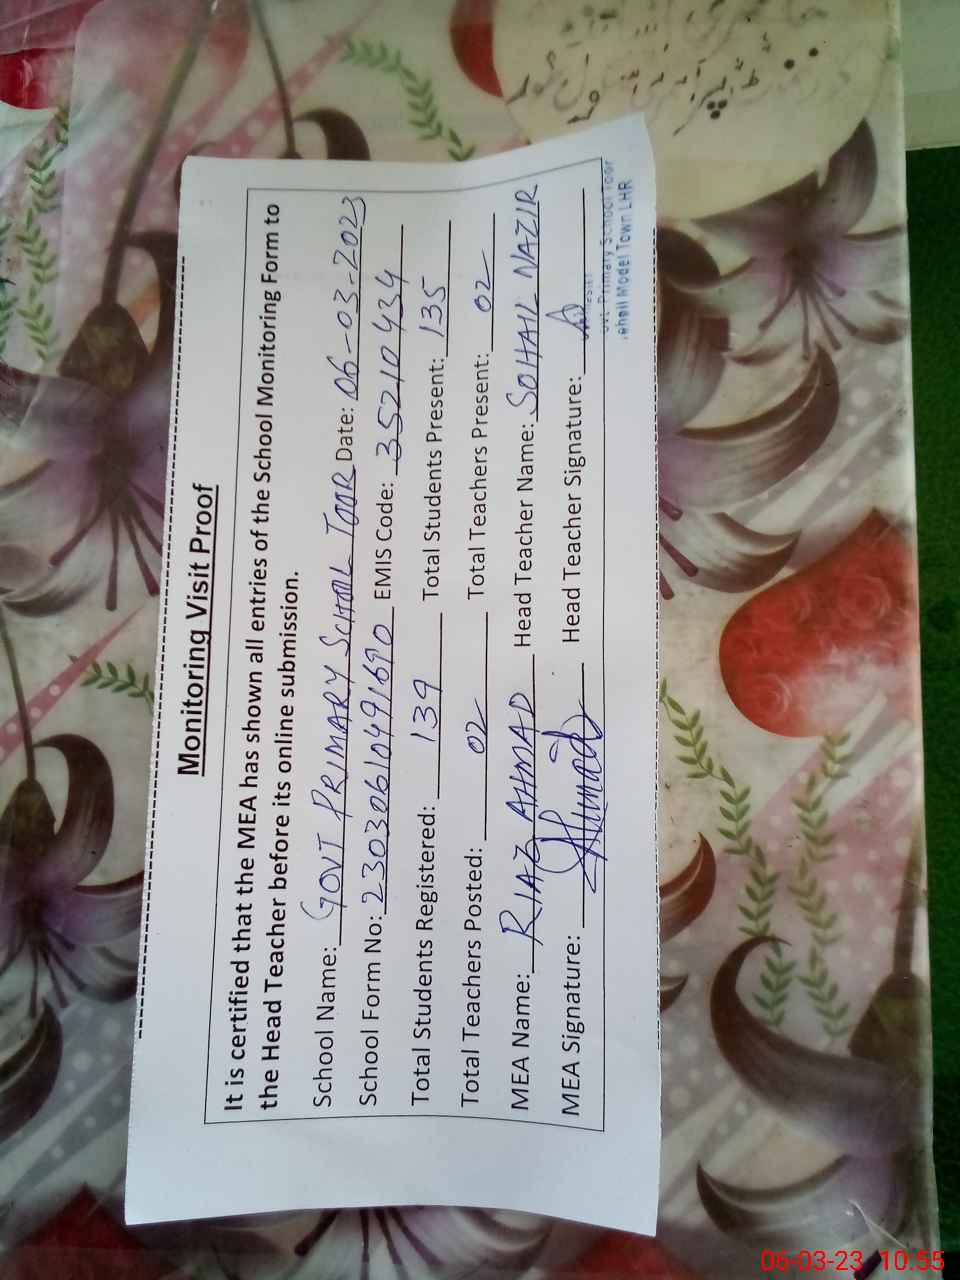 Monitoring Visit Proof
It is certified that the MEA has shown all entries of the School Monitoring Form to
the Head Teacher before its online submission.
School Name: GOVT PRIMARY SCHOOL TOOR Date: 06-03-2023
School Form No: 23030610491690 EMIS Code: 35210434
Total Students Registered: 139 Total Students Present: 135
Total Teachers Posted: 02 Total Teachers Present: 02
MEA Name: RIAZ AHMAD Head Teacher Name: SOHAIL NAZIR
MEA Signature: Head Teacher Signature:
Primary School Toor
Model Town LHR
06-03-23 10:55